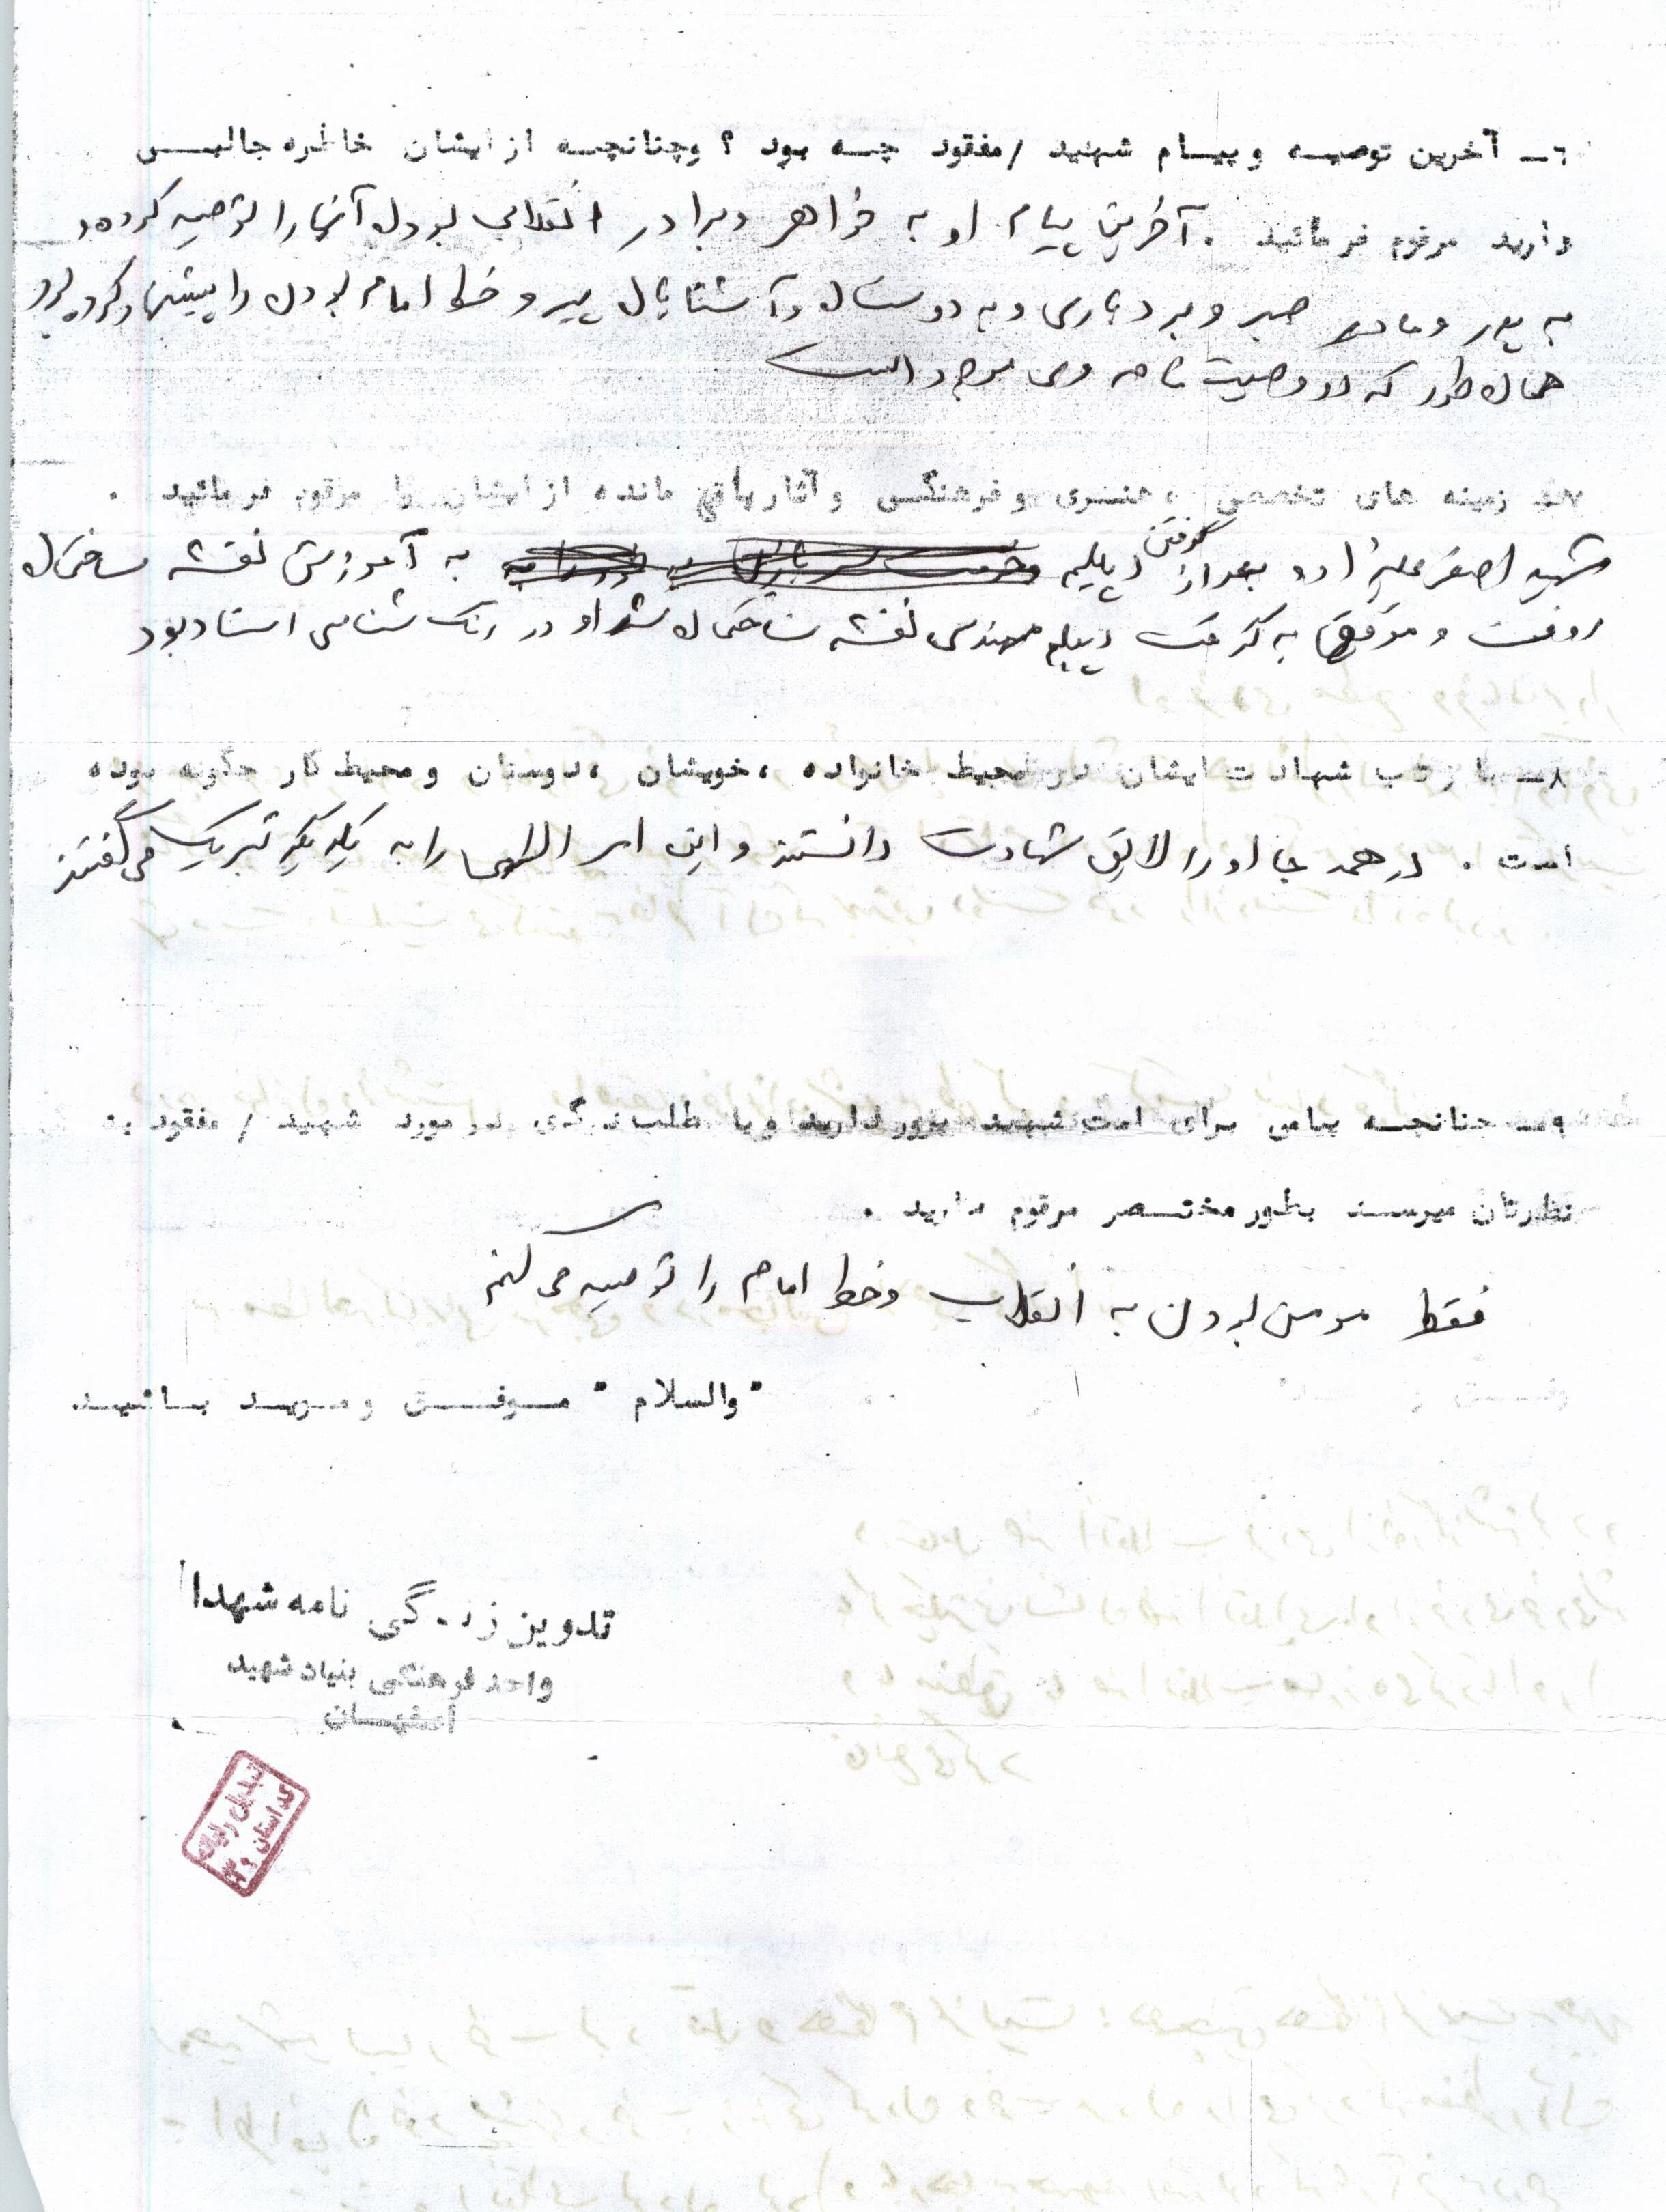 ٦ـ آخرین توصیه و پیام شهید /مفقود چه بود ؟ وچنانچه از ایشان خاطره جالبی
دارید مرقوم فرمائید . آخرین پیام او به خواهر وبرادر انقلابی بودن آنها را توصیه کرده و
به پدر ومادر صبر و بردباری و به دوستان وآشنایان پیرو خط امام بودن را پیشنهاد کرده بود
همان طور که در وصیت نامه وی موجود است
زمینه های تخصصی ، هنری و فرهنگی و آثار باقی مانده از ایشان را مرقوم فرمائید .
شهید اصغر علیزاده بعد از گرفتن دیپلم به آموزش نقشه ساختمان
رفت و موفق به گرفتن دیپلم مهندسی نقشه ساختمان شد او در رنگ شناسی استاد بود
٨ـ بازتاب شهادت ایشان در محیط خانواده ، خویشان ، دوستان و محیط کار چگونه بوده
است . در همه جا او را لایق شهادت دانستند و این امر الهی را به یکدیگر تبریک می گفتند
٩ـ چنانچه پیامی برای امت شهید پرور دارید و یا مطلب دیگری در مورد شهید / مفقود به
نظرتان میرسد بطور مختصر مرقوم دارید .
فقط مومن بودن به انقلاب وخط امام را توصیه می کنم
"والسلام " موفق و موید باشید.
تدوین زندگی نامه شهدا
واحد فرهنگی بنیاد شهید
اصفهان
تبدیل رایانه
کد استان ۳۰